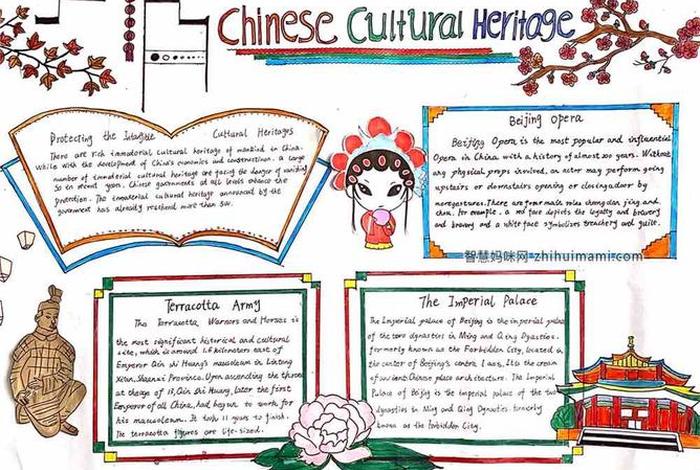 Chinese Cultural Heritage
Protecting the Intangible Cultural Heritages
There are rich immaterial cultural heritage of mankind in China.
while with the development of China's economics and construction. a large
number of immaterial cultural heritage are facing the danger of vanishing
So in recent years, Chinese governments at all levels enhance the
protection. The immaterial cultural heritage announced by the
government has already reached more than 500.
Beijing Opera
Beijing Opera is the most popular and influential
Opera in China with a history of almost 200 years. Without
any physical props involved, an actor may perform going
upstairs or downstairs opening or closing a door by
mere gestures. There are four main roles sheng dan jing and
chou. For example, a red face depicts the loyalty and bravery
and bravery and a white face symbolizes treachery and guile.
智慧妈咪网-zhihuimami.com
Terracotta Army
The Terracotta Warriors and Horses is
the most significant historical and cultural
site, which is around 1.5 kilometers east of
Emperor Qin Shi Huang's mausoleum in Lintong
Xi'an, Shaanxi Province. Upon ascending the throne
at the age of 13, Qin Shi Huang, later the first
Emperor of all China, had begun to work for
his mausoleum. It took 11 years to finish.
The terracotta figures are life-sized.
The Imperial Palace
The Imperial palace of Beijing is the imperial palace
of the two dynasties in Ming and Qing Dynasties.
formerly known as the Forbidden City, located in
the center of Beijing's central axis, Its the cream
of ancient Chinese place architecture. The Imperial
Palace of Beijing is the imperial palace of the two
dynasties in Ming and Qing Dynasties formerly
known as the Forbidden City.